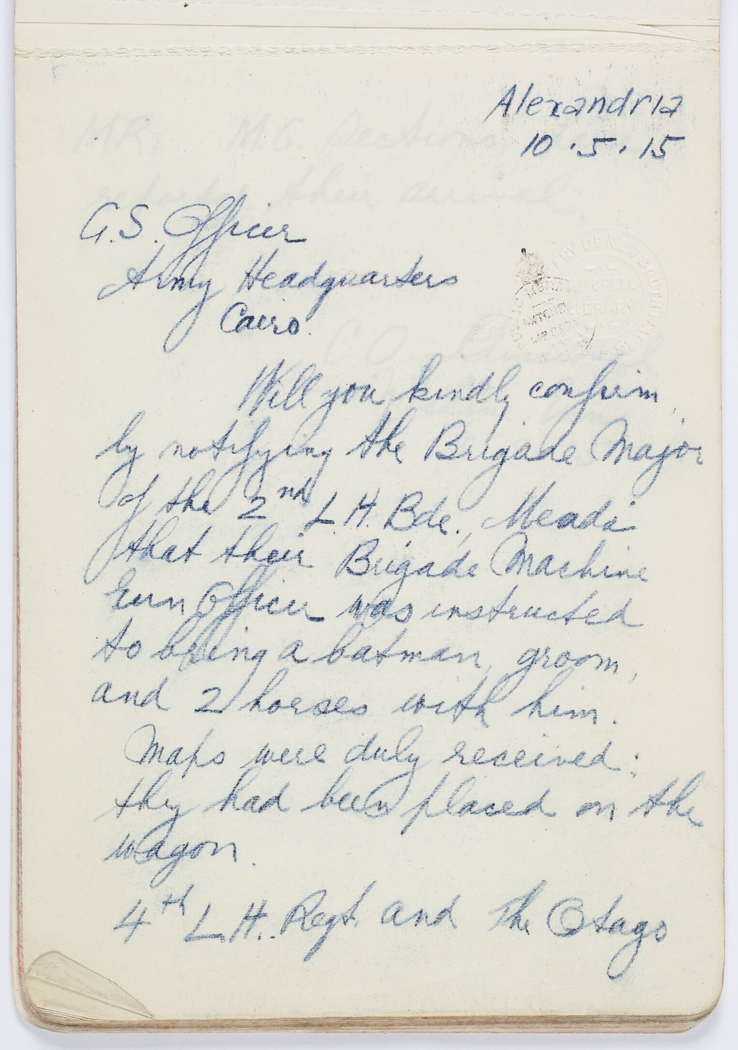 Alexandria
10.5.15
G.S. Officer
Army Headquarters
Cairo.
Will you kindly confirm,
by notifying the Brigade Major
of the 2nd L.H. Bde., Meadi
that their Brigade Machine
Gun Officer was instructed
to bring a batman, groom,
and 2 horses with him.
Maps were duly received:
they had been placed on the
wagon.
4th L.H. Regt. and The Otago